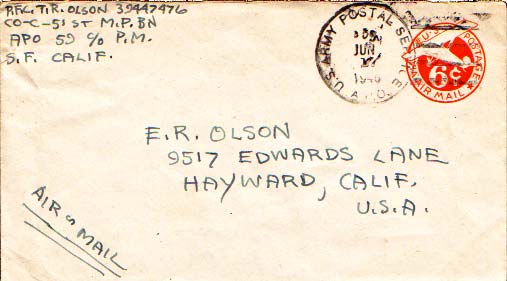 PFC. T.R. OLSON 39442476
CO-C-51 ST M.P. BN
APO 59 c/o P.M.
S.F. CALIF.
U.S. ARMY POSTAL SERVICE
JUN
194
A.P.O.
U.S. POSTAGE
6¢
AIR MAIL
E.R. OLSON
9517 EDWARDS LANE
HAYWARD, CALIF.
U.S.A.
AIR MAIL